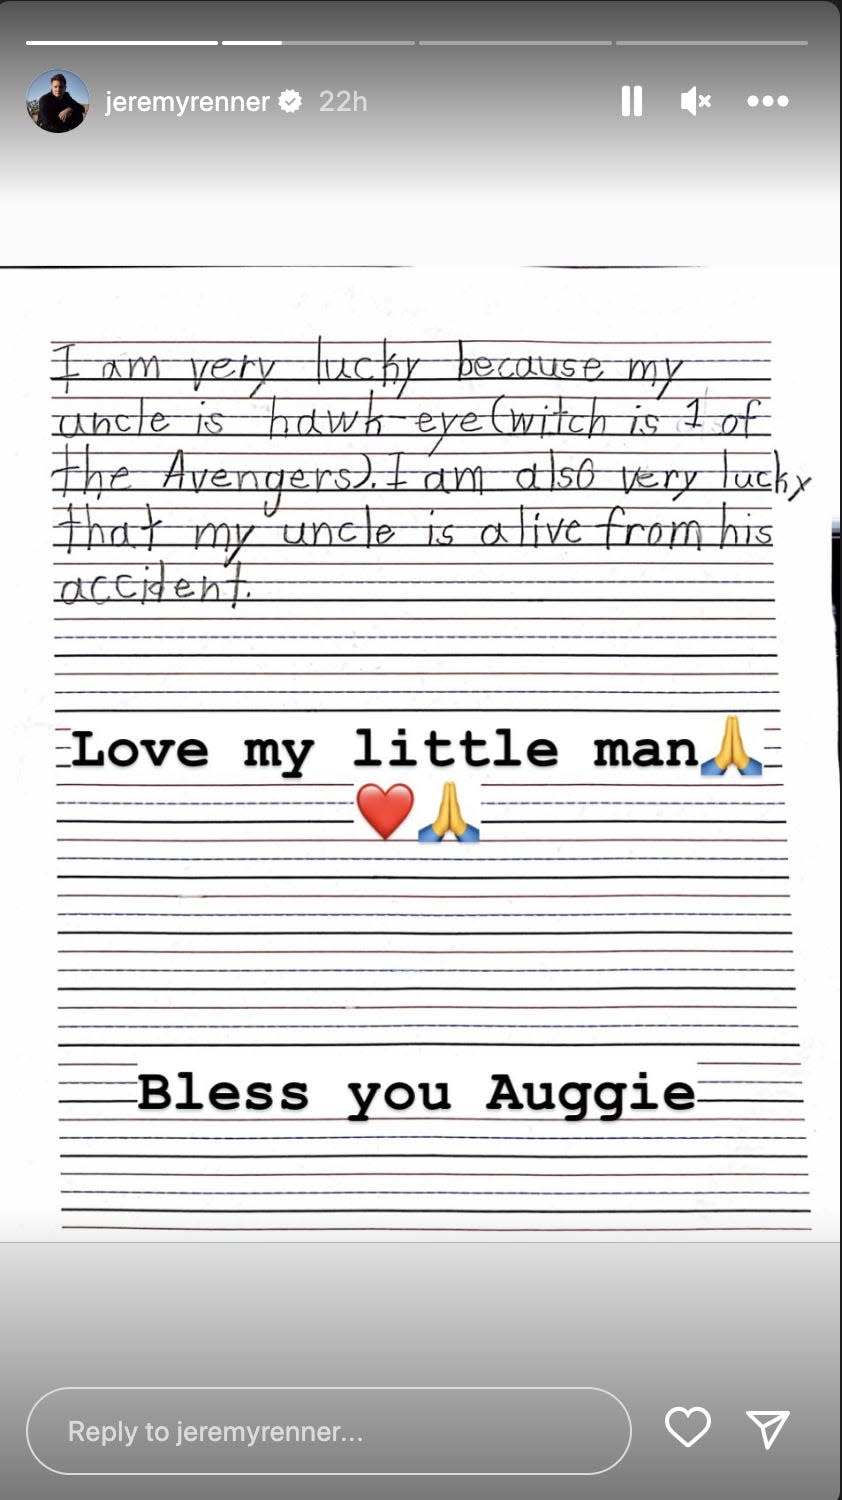 jeremyrenner 22h
I am very lucky because my
uncle is hawk-eye (witch is 1 of
the Avengers). I am also very lucky
that my uncle is alive from his
accident.
Love my little man🙏
❤️🙏
Bless you Auggie
Reply to jeremyrenner...